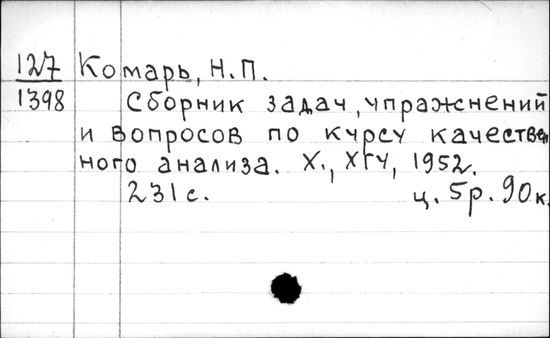 127 Комарь, Н.П.
1398 Сборник задач, упражнений
и вопросов по курсу качествен
ного анализа. Х., ХГУ, 1952.
231с. ц. 5р. 90к.